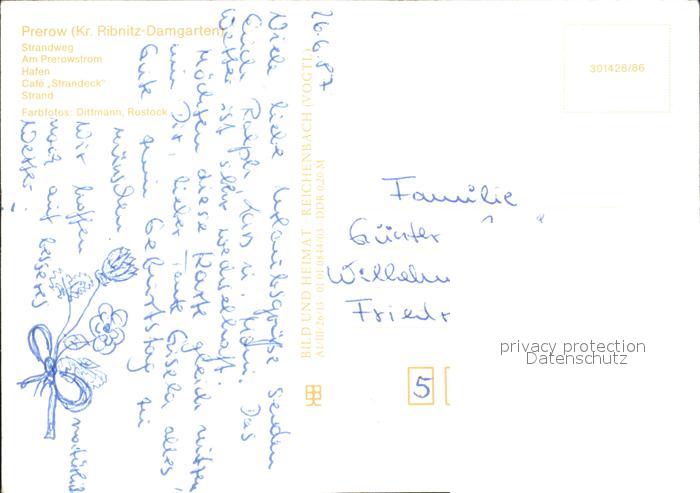 Prerow (Kr. Ribnitz-Damgarten)
Strandweg
Am Prerowstrom
Hafen
Café „Strandeck"
Strand
Farbfotos: Dittmann, Rostock
26.6.87
Viele liebe Urlaubsgrüße senden
Euch Ralph, u. Das
Wetter ist sehr wechselhaft.
Möchten diese Karte gleich nutzen,
um Dir, lieber Tante Gisela alles
Gute zum Geburtstag zu
wünschen.
Wir hoffen natürlich
noch auf besseres
Wetter.
BILD UND HEIMAT REICHENBACH (VOGTL)
A1/III/26/13 01 01 0844/03 DDR 0,20 M
301428/86
Familie
Günter
Wilhelm
Friedr
5
privacy protection
Datenschutz